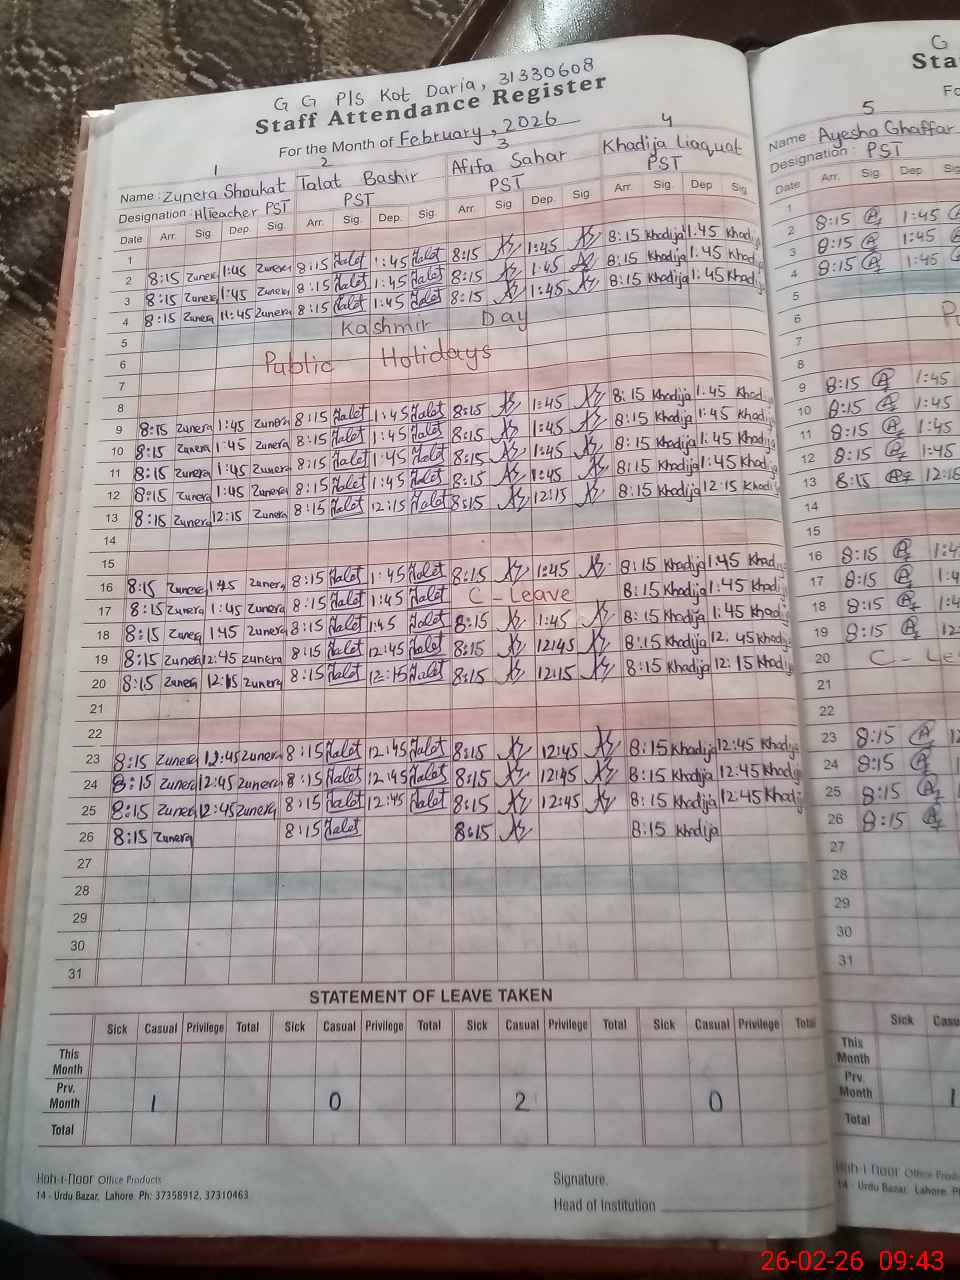 G G P/s Kot Daria, 31330608
Staff Attendance Register
For the Month of February, 2026
1 2 3 4
Name: Zunera Shaukat Talat Bashir Afifa Sahar Khadija Liaquat
Designation: H/Teacher PST PST PST PST
Date Arr. Sig. Dep. Sig. Arr. Sig. Dep. Sig. Arr. Sig Dep. Sig. Arr. Sig. Dep Sig
1
2 8:15 Zunera 1:45 Zunera 8:15 Talat 1:45 Talat 8:15 1:45 8:15 Khadija 1:45 Khadija
3 8:15 Zunera 1:45 Zunera 8:15 Talat 1:45 Talat 8:15 1:45 8:15 Khadija 1:45 Khadija
4 8:15 Zunera 1:45 Zunera 8:15 Talat 1:45 Talat 8:15 1:45 8:15 Khadija 1:45 Khadija
5 Kashmir Day
6 Public Holidays
7
8
9 8:15 Zunera 1:45 Zunera 8:15 Talat 1:45 Talat 8:15 1:45 8:15 Khadija 1:45 Khadija
10 8:15 Zunera 1:45 Zunera 8:15 Talat 1:45 Talat 8:15 1:45 8:15 Khadija 1:45 Khadija
11 8:15 Zunera 1:45 Zunera 8:15 Talat 1:45 Talat 8:15 1:45 8:15 Khadija 1:45 Khadija
12 8:15 Zunera 1:45 Zunera 8:15 Talat 1:45 Talat 8:15 1:45 8:15 Khadija 1:45 Khadija
13 8:15 Zunera 12:15 Zunera 8:15 Talat 12:15 Talat 8:15 12:15 8:15 Khadija 12:15 Khadija
14
15
16 8:15 Zunera 1:45 Zunera 8:15 Talat 1:45 Talat 8:15 1:45 8:15 Khadija 1:45 Khadija
17 8:15 Zunera 1:45 Zunera 8:15 Talat 1:45 Talat C - Leave 8:15 Khadija 1:45 Khadija
18 8:15 Zunera 1:45 Zunera 8:15 Talat 1:45 Talat 8:15 1:45 8:15 Khadija 1:45 Khadija
19 8:15 Zunera 12:45 Zunera 8:15 Talat 12:45 Talat 8:15 12:45 8:15 Khadija 12:45 Khadija
20 8:15 Zunera 12:15 Zunera 8:15 Talat 12:15 Talat 8:15 12:15 8:15 Khadija 12:15 Khadija
21
22
23 8:15 Zunera 12:45 Zunera 8:15 Talat 12:45 Talat 8:15 12:45 8:15 Khadija 12:45 Khadija
24 8:15 Zunera 12:45 Zunera 8:15 Talat 12:45 Talat 8:15 12:45 8:15 Khadija 12:45 Khadija
25 8:15 Zunera 12:45 Zunera 8:15 Talat 12:45 Talat 8:15 12:45 8:15 Khadija 12:45 Khadija
26 8:15 Zunera 8:15 Talat 8:15 8:15 Khadija
27
28
29
30
31
STATEMENT OF LEAVE TAKEN
Sick Casual Privilege Total Sick Casual Privilege Total Sick Casual Privilege Total Sick Casual Privilege Total
This Month
Prv. Month 1 0 2 0
Total
Koh-i-Noor Office Products
14 - Urdu Bazar, Lahore. Ph: 37358912, 37310463
Signature.
Head of Institution
G
Sta
5
Name: Ayesha Ghaffar
Designation: PST
Date Arr. Sig. Dep
1
2 8:15 1:45
3 8:15 1:45
4 8:15 1:45
5
6
7
8
9 8:15 1:45
10 8:15 1:45
11 8:15 1:45
12 8:15 1:45
13 8:15 12:15
14
15
16 8:15
17 8:15
18 8:15
19 8:15
20 C - Le
21
22
23 8:15
24 8:15
25 8:15
26 8:15
27
28
29
30
31
Sick
This Month
Prv. Month 1
Total
Koh-i-Noor Office
14 - Urdu Bazar, Lahore.
26-02-26 09:43